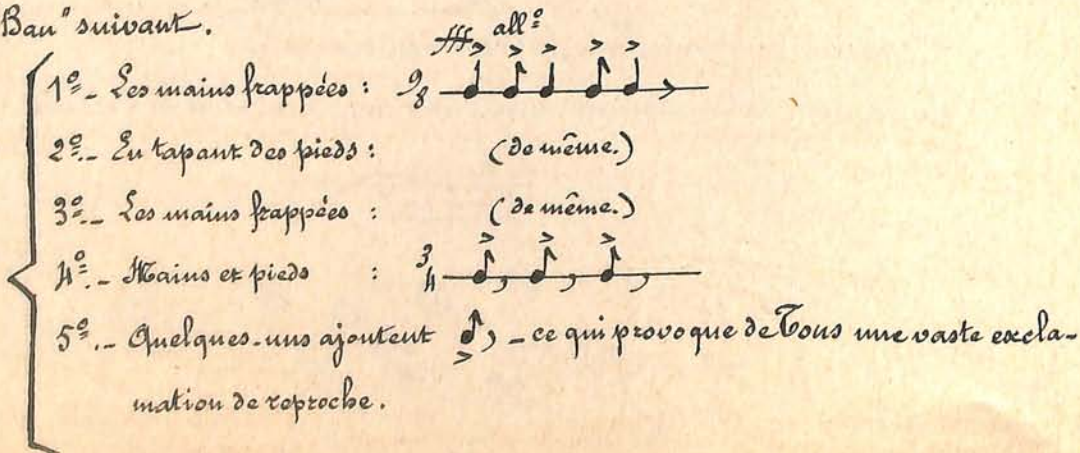 Ban" suivant.
fff all°
1° - Les mains frappées : 9/8
2° - En tapant des pieds : (de même.)
3° - Les mains frappées : (de même.)
4° - Mains et pieds : 3/4
5° - Quelques-uns ajoutent - ce qui provoque de Tous une vaste excla-
mation de reproche.